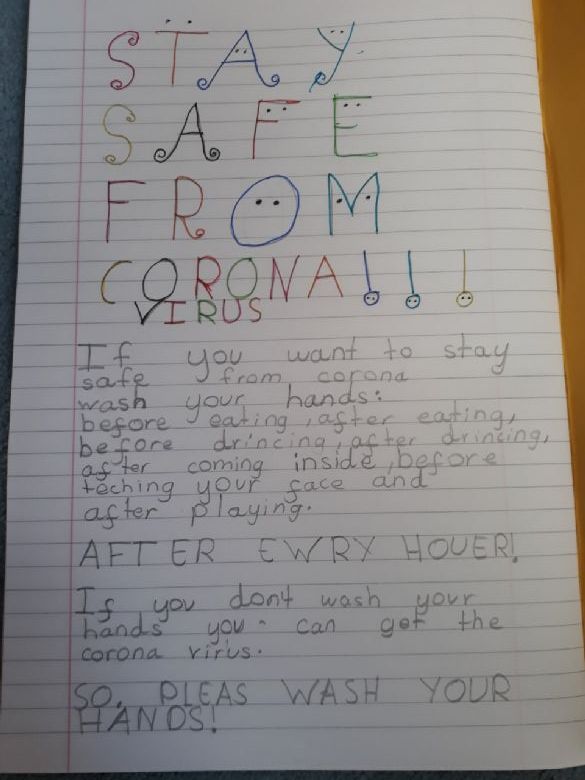 STAY
SAFE
FROM
CORONA!!!
VIRUS
If you want to stay
safe from corona
wash your hands:
before eating, after eating,
before drincing, after drincing,
after coming inside, before
teching your face and
after playing.
AFTER EWRY HOUER!
If you don't wash your
hands you can get the
corona virus.
SO, PLEAS WASH YOUR
HANDS!